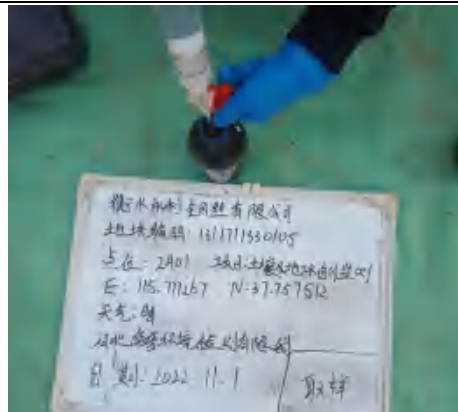 衡水 有限公司
地块编号: 1311711330105
点位: 2A01 项目: 土壤及地下水自行监测
E: 115.771267 N: 37.757512
天气: 晴
河北 环境检测有限公司
日期: 2022.11.1 取样